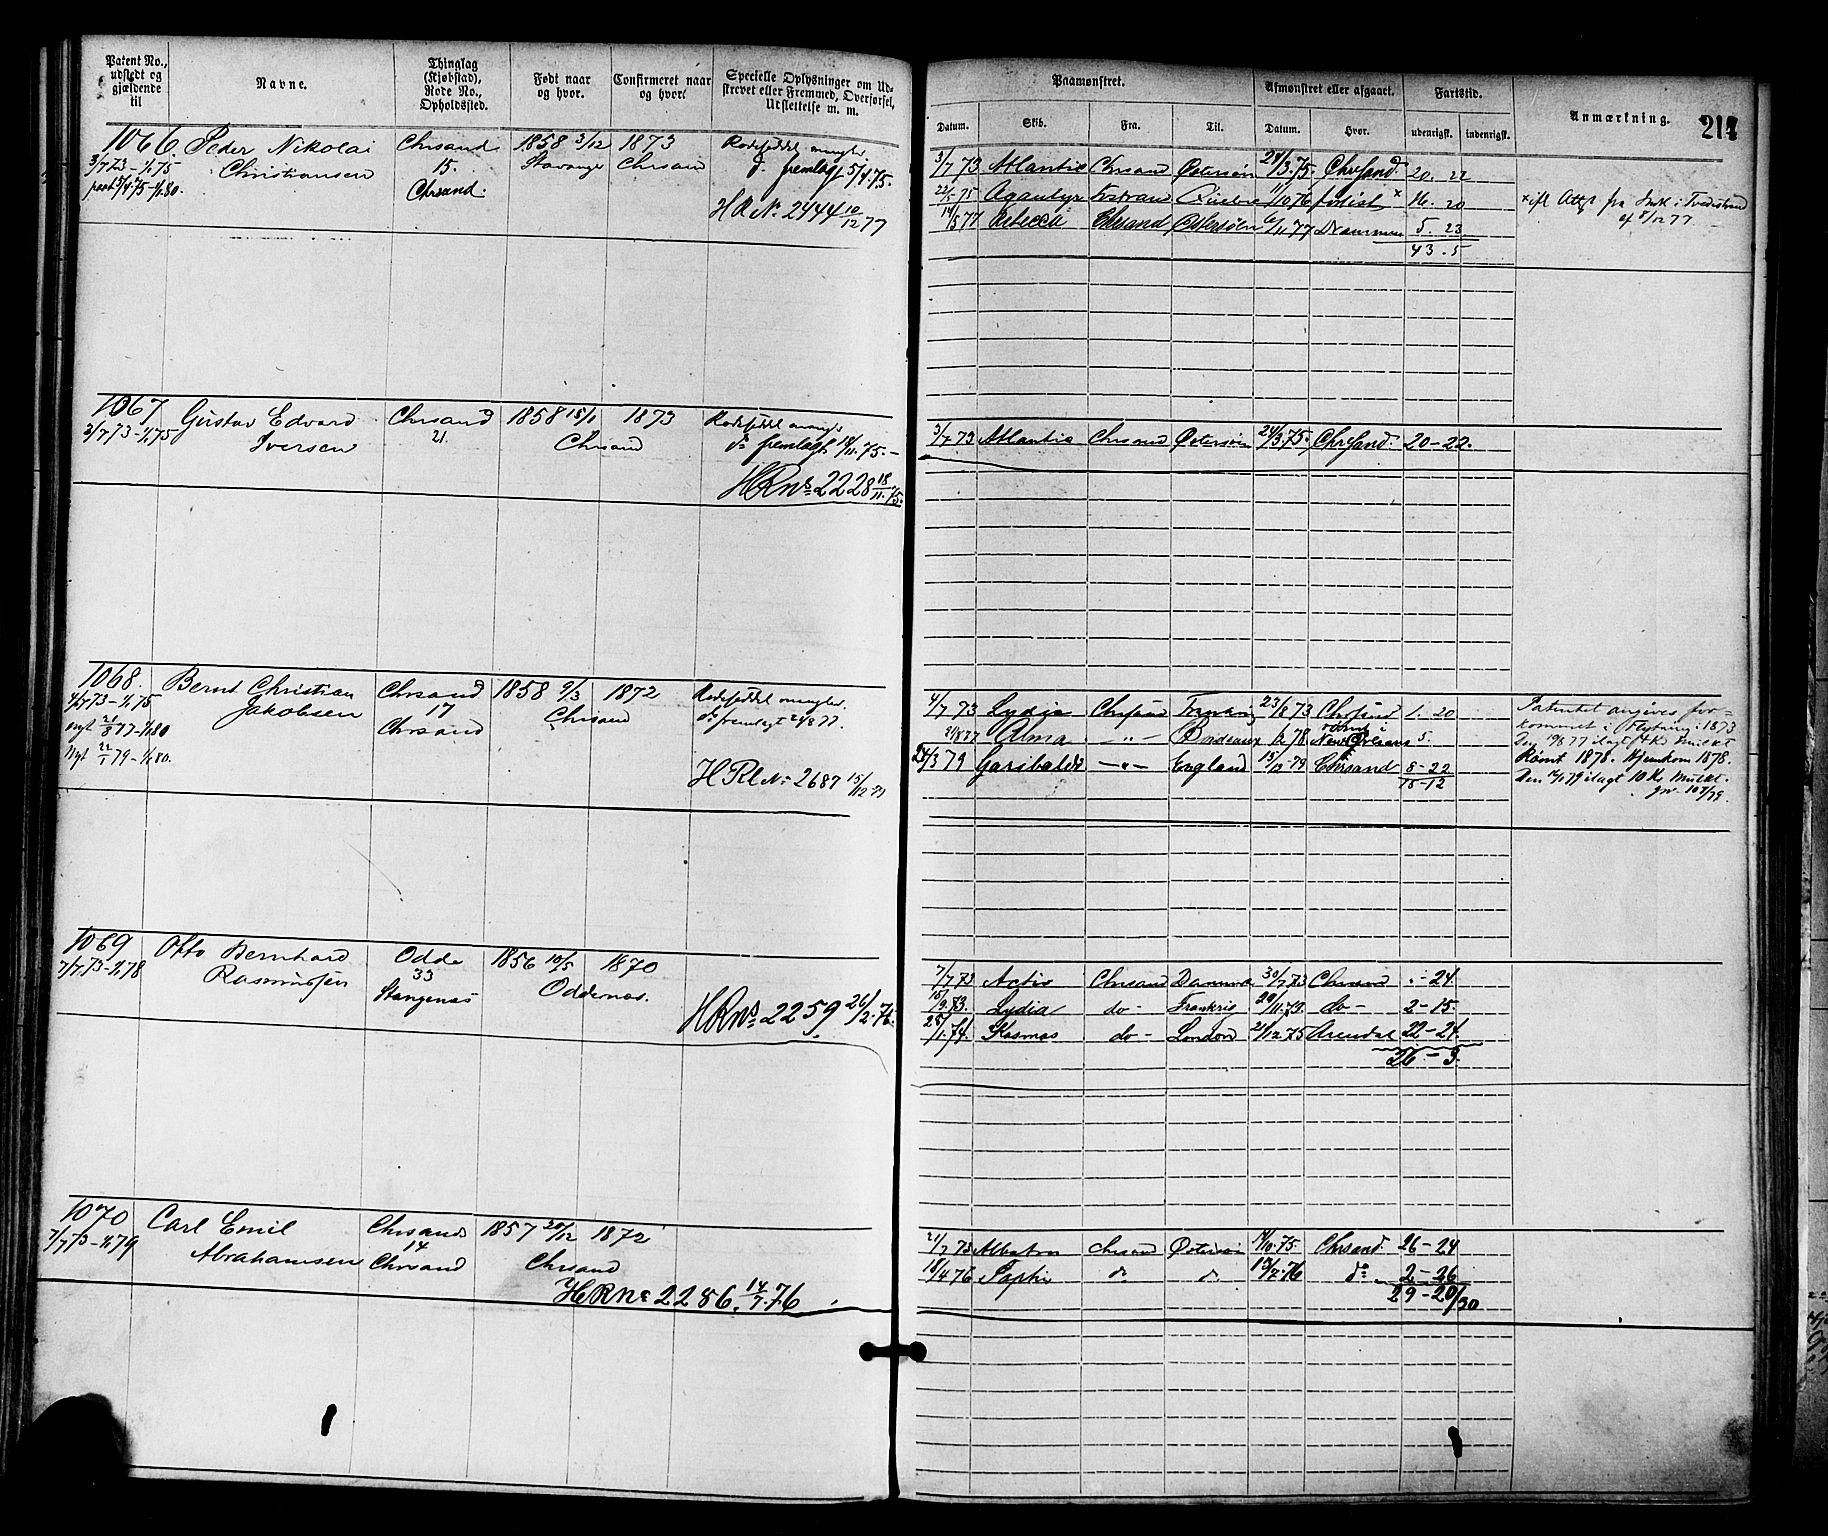 Patent No., udstedt og gjældende til
Navne.
Thinglag (Kjøbstad), Rode No., Opholdssted.
Født naar og hvor.
Confirmeret naar og hvor.
Specielle Oplysninger om Udstrevet eller Fremmed, Overførsel, Udslettelse m. m.
Paamønstret.
Afmønstret eller afgaaet.
Fartstid.
Anmærkning.
Datum. Skib. Fra. Til. Datum. Hvor. udenrigsk. indenrigsk.
214
1066 Peder Nikolai Chrsand 1858 3/12 1873
3/7 73 - 1/1 75 Christiansen 15. Stavanger Chrsand
Chrsand. fremlagt 5/4 75.
HR No. 2444 10/12 77
3/7 73 Atlantic Chrsand Østersøn 24/3 75. Chrsand. 20. 22
22/5 75 Agantyr 1/10 76 x 16. 20 x ifl Attest fra
14/5 77 Rebecca Chrsand Østersøen 6/11 77 Drammen 5. 23
43. 5
1067 Gustav Edvard Chrsand 1858 15/1 1873
3/7 73 - 1/1 75 Iversen 21. Chrsand do fremlagt 18/11 75.
HR No 2228 18/11 75.
3/7 73 Atlantic Chrsand Østersøn 24/3 75. Chrsand. 20-22.
1068. Bernt Christian Chrsand 1858 9/3 1872
4/7 73 - 1/1 75 Jakobsen 17 Chrsand do fremlagt
nyt 21/8 77 - 1/1 80 Chrsand
Nyt 22/1 79 - 1/1 80.
H Rl No. 2687 15/12 79
4/7 73 Lydia Chrsand 23/8 73 Chrsand 1. 20 Patentet angives for-
21/8 77 Alma — " — Bordeaux 1/2 78. New Orleans 5. kommet i Flytning i 1873
ilagt 4 Kr Mulkt
24/3 79 Garibaldi — " — England 13/12 79 Chrsand 8-22 Rømt 1878. Hjemkom 1878.
15-12 ilagt 10 Kr Mulkt.
1069 Otto Bernhard Odde 1856 10/5 1870
7/7 73 - 1/1 78 Rasmussen 33 Oddernes.
Stangenæs
HR No. 2259 26/2 76.
7/7 73 Activ Chrsand Danmark 30/7 73 Chrsand " - 24.
15/9 73. Lydia do - Frankrig 20/11 73. do - 2-15.
28/1 74. Kosmos do - London 21/12 75 Arendal 22-24.
26-3.
1070 Carl Emil Chrsand 1857 20/12 1872
7/7 73 - 1/1 79 Abrahamsen 14 Chrsand
Chrsand
HR No 2286. 14/7 76
21/7 73 Albatros Chrsand Østersøn 14/10 75 Chrsand. 26-24
18/4 76 do do 13/7 76 do 2-26
29-20/30